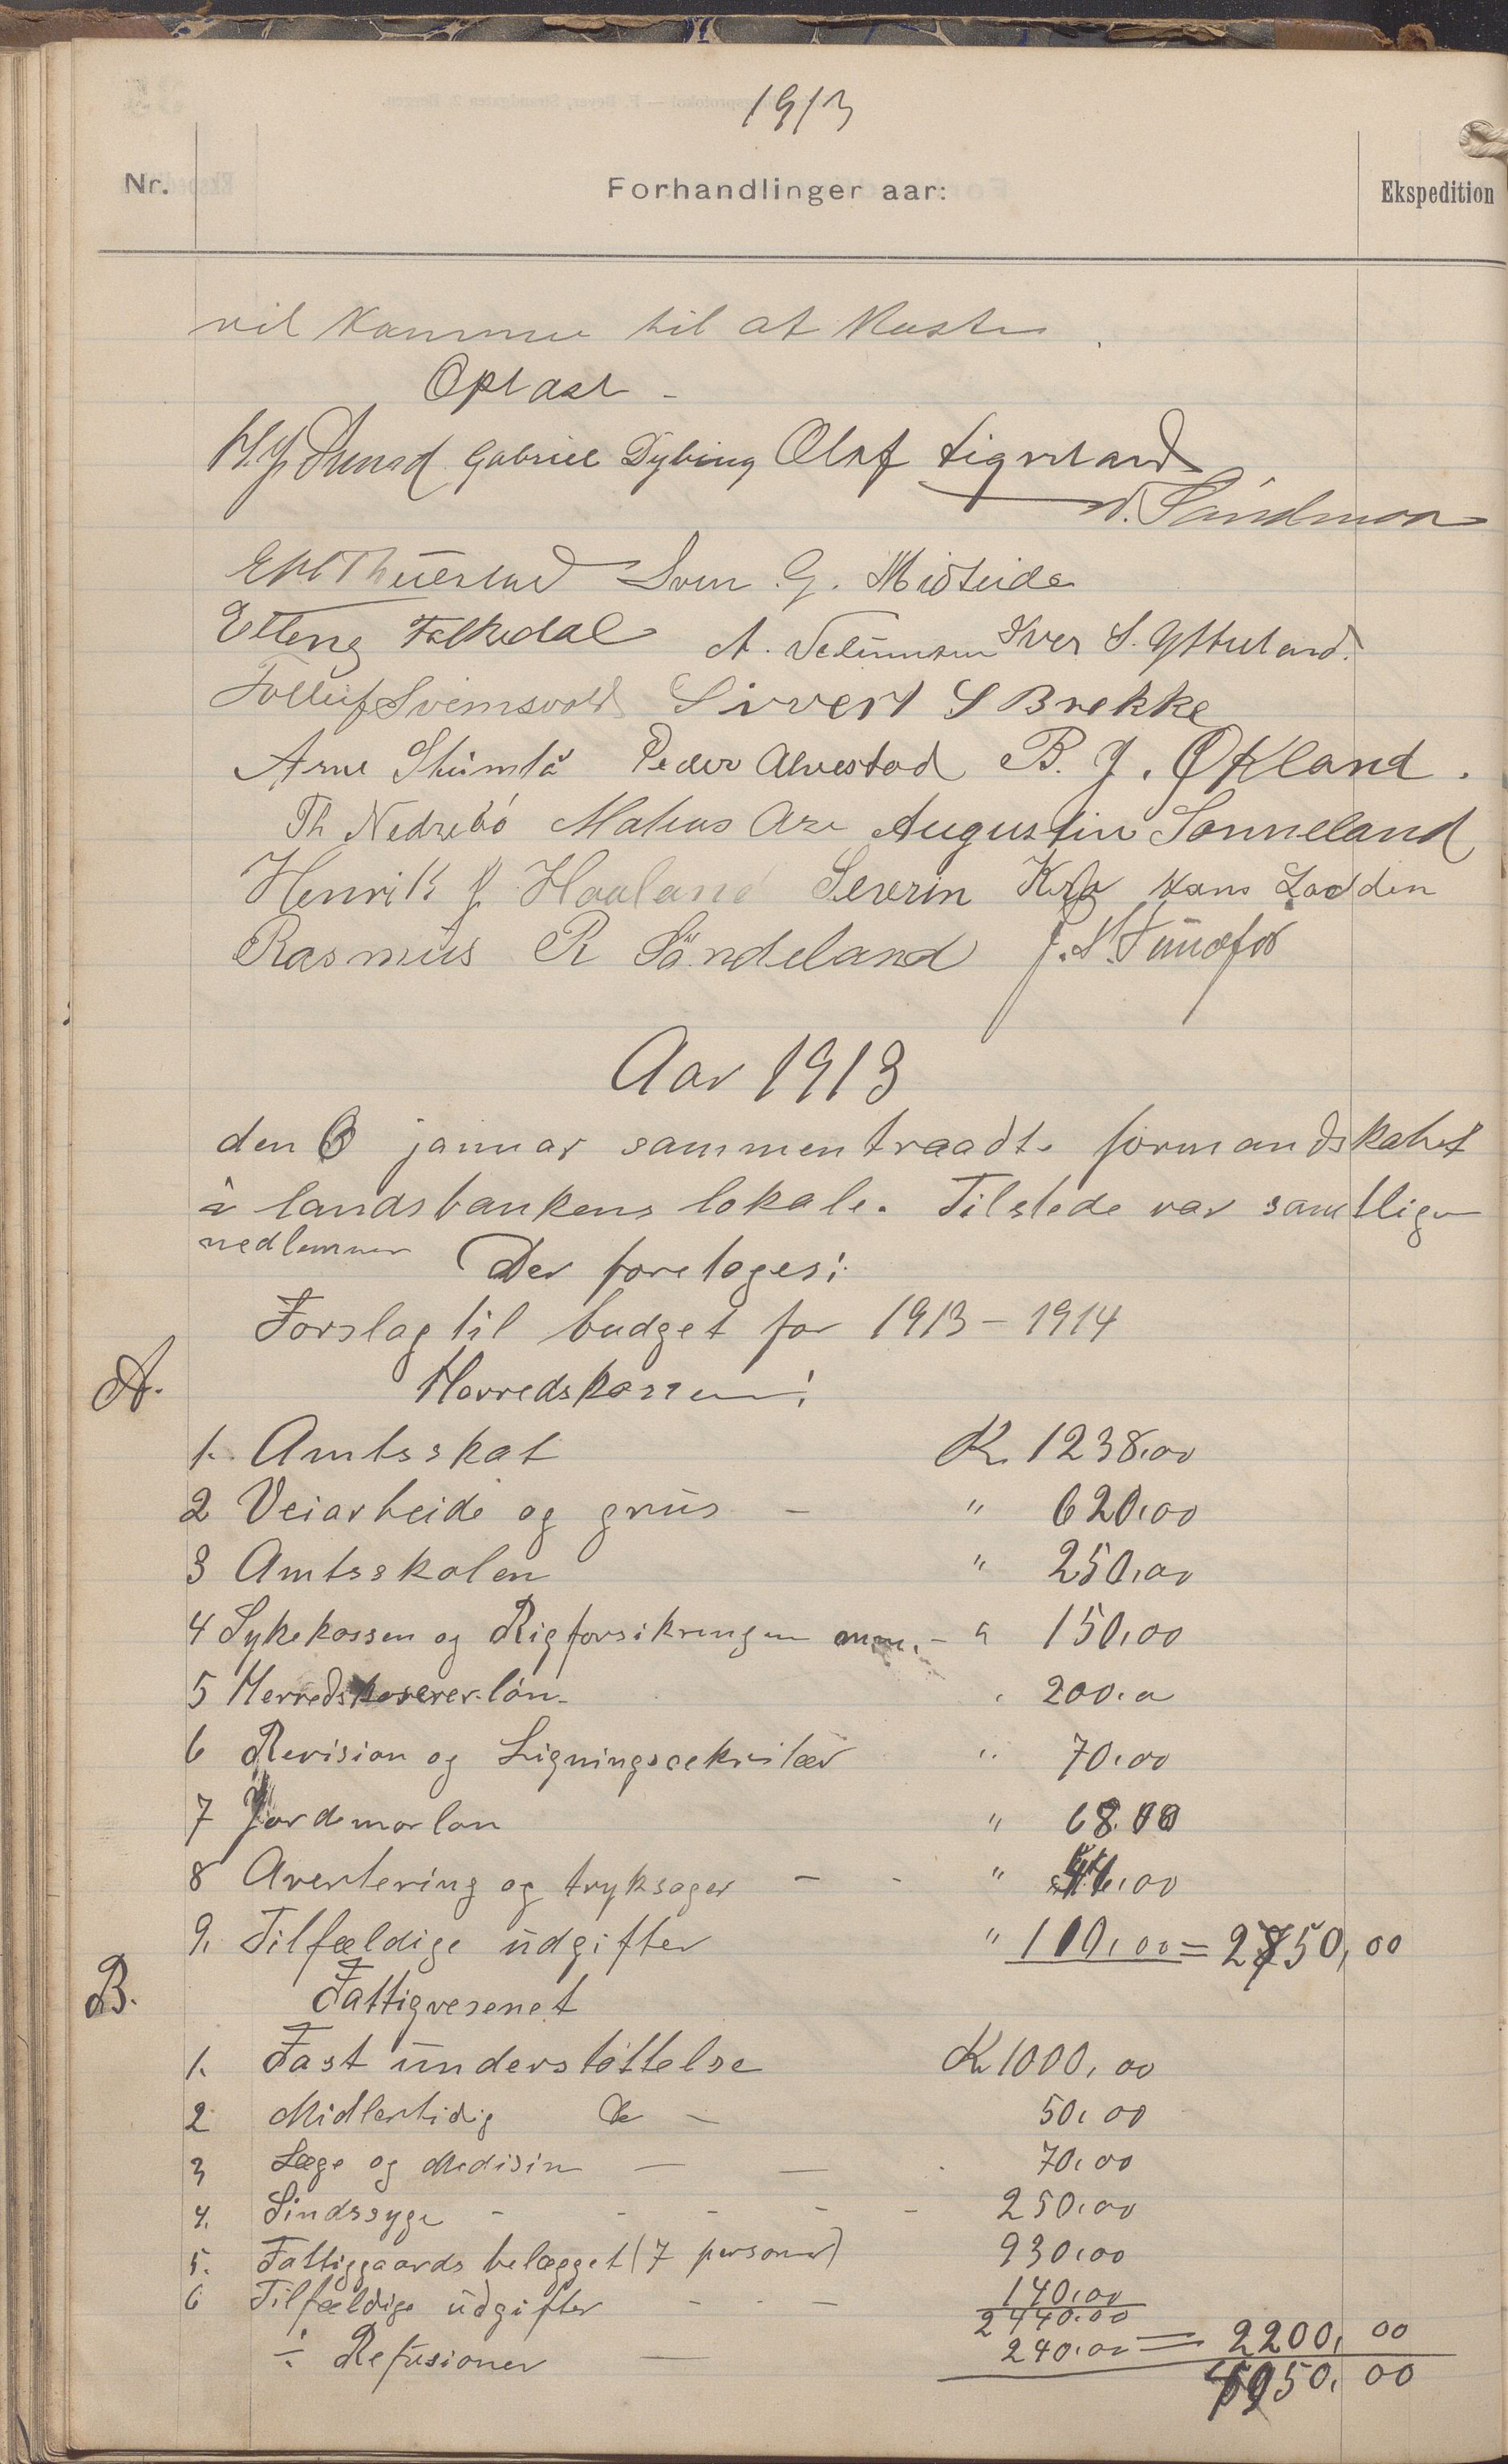 1913
Nr. Forhandlinger aar: Ekspedition
vil komme til at koste.
Oplæst -
Gabriel Dybing Olaf Sigveland
Sandmoen
Sven G. Midteide
Elling Falkedal A. Iver S. Ytteland.
Tolleif Svemsvold Sivert S Brekke
Arne Peder Alvestad B. J. Økland.
Th Nedrebö Mateus Ase Augustin Sonneland
Henrik J. Haaland Severin Hans Lodden
Rasmus R Söndeland
Aar 1913
den 6 januar sammentraadte formandskabet
i landsbankens lokale. Tilstede var samtlige
medlemmer Der foretoges:
Forslag til budget for 1913 - 1914
A. Herredskassen:
1. Amtsskat K. 1238,00
2 Veiarbeide og grus - " 620,00
3 Amtsskolen " 250,00
4 Sykekassen og Rigforsikringen m.m. - " 150,00
5 Herredskaserer-lön - " 200,00
6 Revision og Ligningssekretær " 70,00
7 Jordemorløn " 68.00
8 Avertering og tryksager - - "
9. Tilfældige udgifter " 100,00 = 2750,00
B. Fattigvesenet
1. Fast understøttelse K 1000,00
2 Midlertidig do - 50,00
3 Læge og Medisin — — 70,00
4. Sindssyge - - - - - 250,00
5. Fattiggaards belægget (7 personer) 930,00
6 Tilfældige udgifter - - - 140,00
2440,00
÷ Refusioner — 240,00 = 2200,00
4950,00